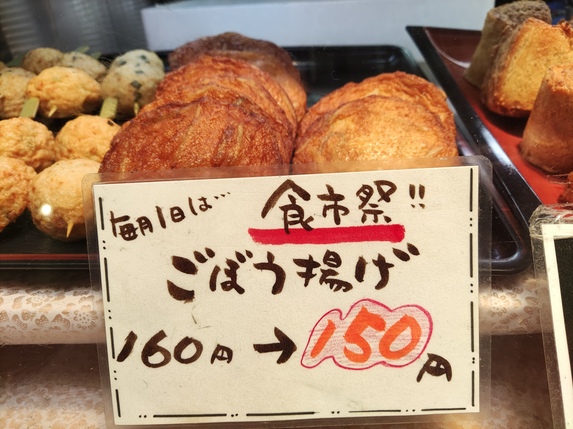 毎月1日は…
食市祭!!
ごぼう揚げ
160円→150円